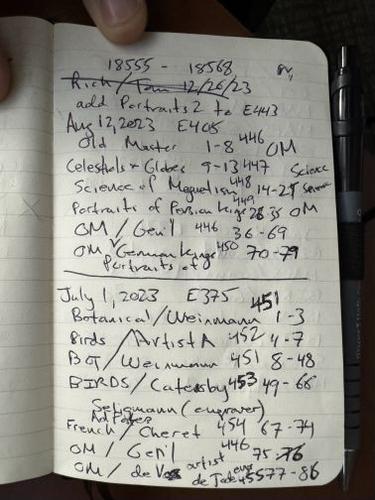 18555 - 18568
Rich/Tom 12/26/23
add Portraits 2 to E443
Aug 12, 2023 E405
Old Master 1-8 446 OM
Celestials + Globes 9-13 447 Science
Science of Magnetism 448 14-25 Science
Portraits of Persian Kings 449 26 35 OM
OM / Gen'l 446 36-69
OM German Kings 450 70-79
Portraits of
July 1, 2023 E375 451
Botanical/Weinmann 1-3
Birds / Artist A 452 4-7
BOT / Weinmann 451 8-48
BIRDS / Catesby 453 49-66
Seligmann (engraver)
French / Cheret 454 67-74
OM / Gen'l 446 75-76
OM / de Vos artist
de Jode 455 77-86